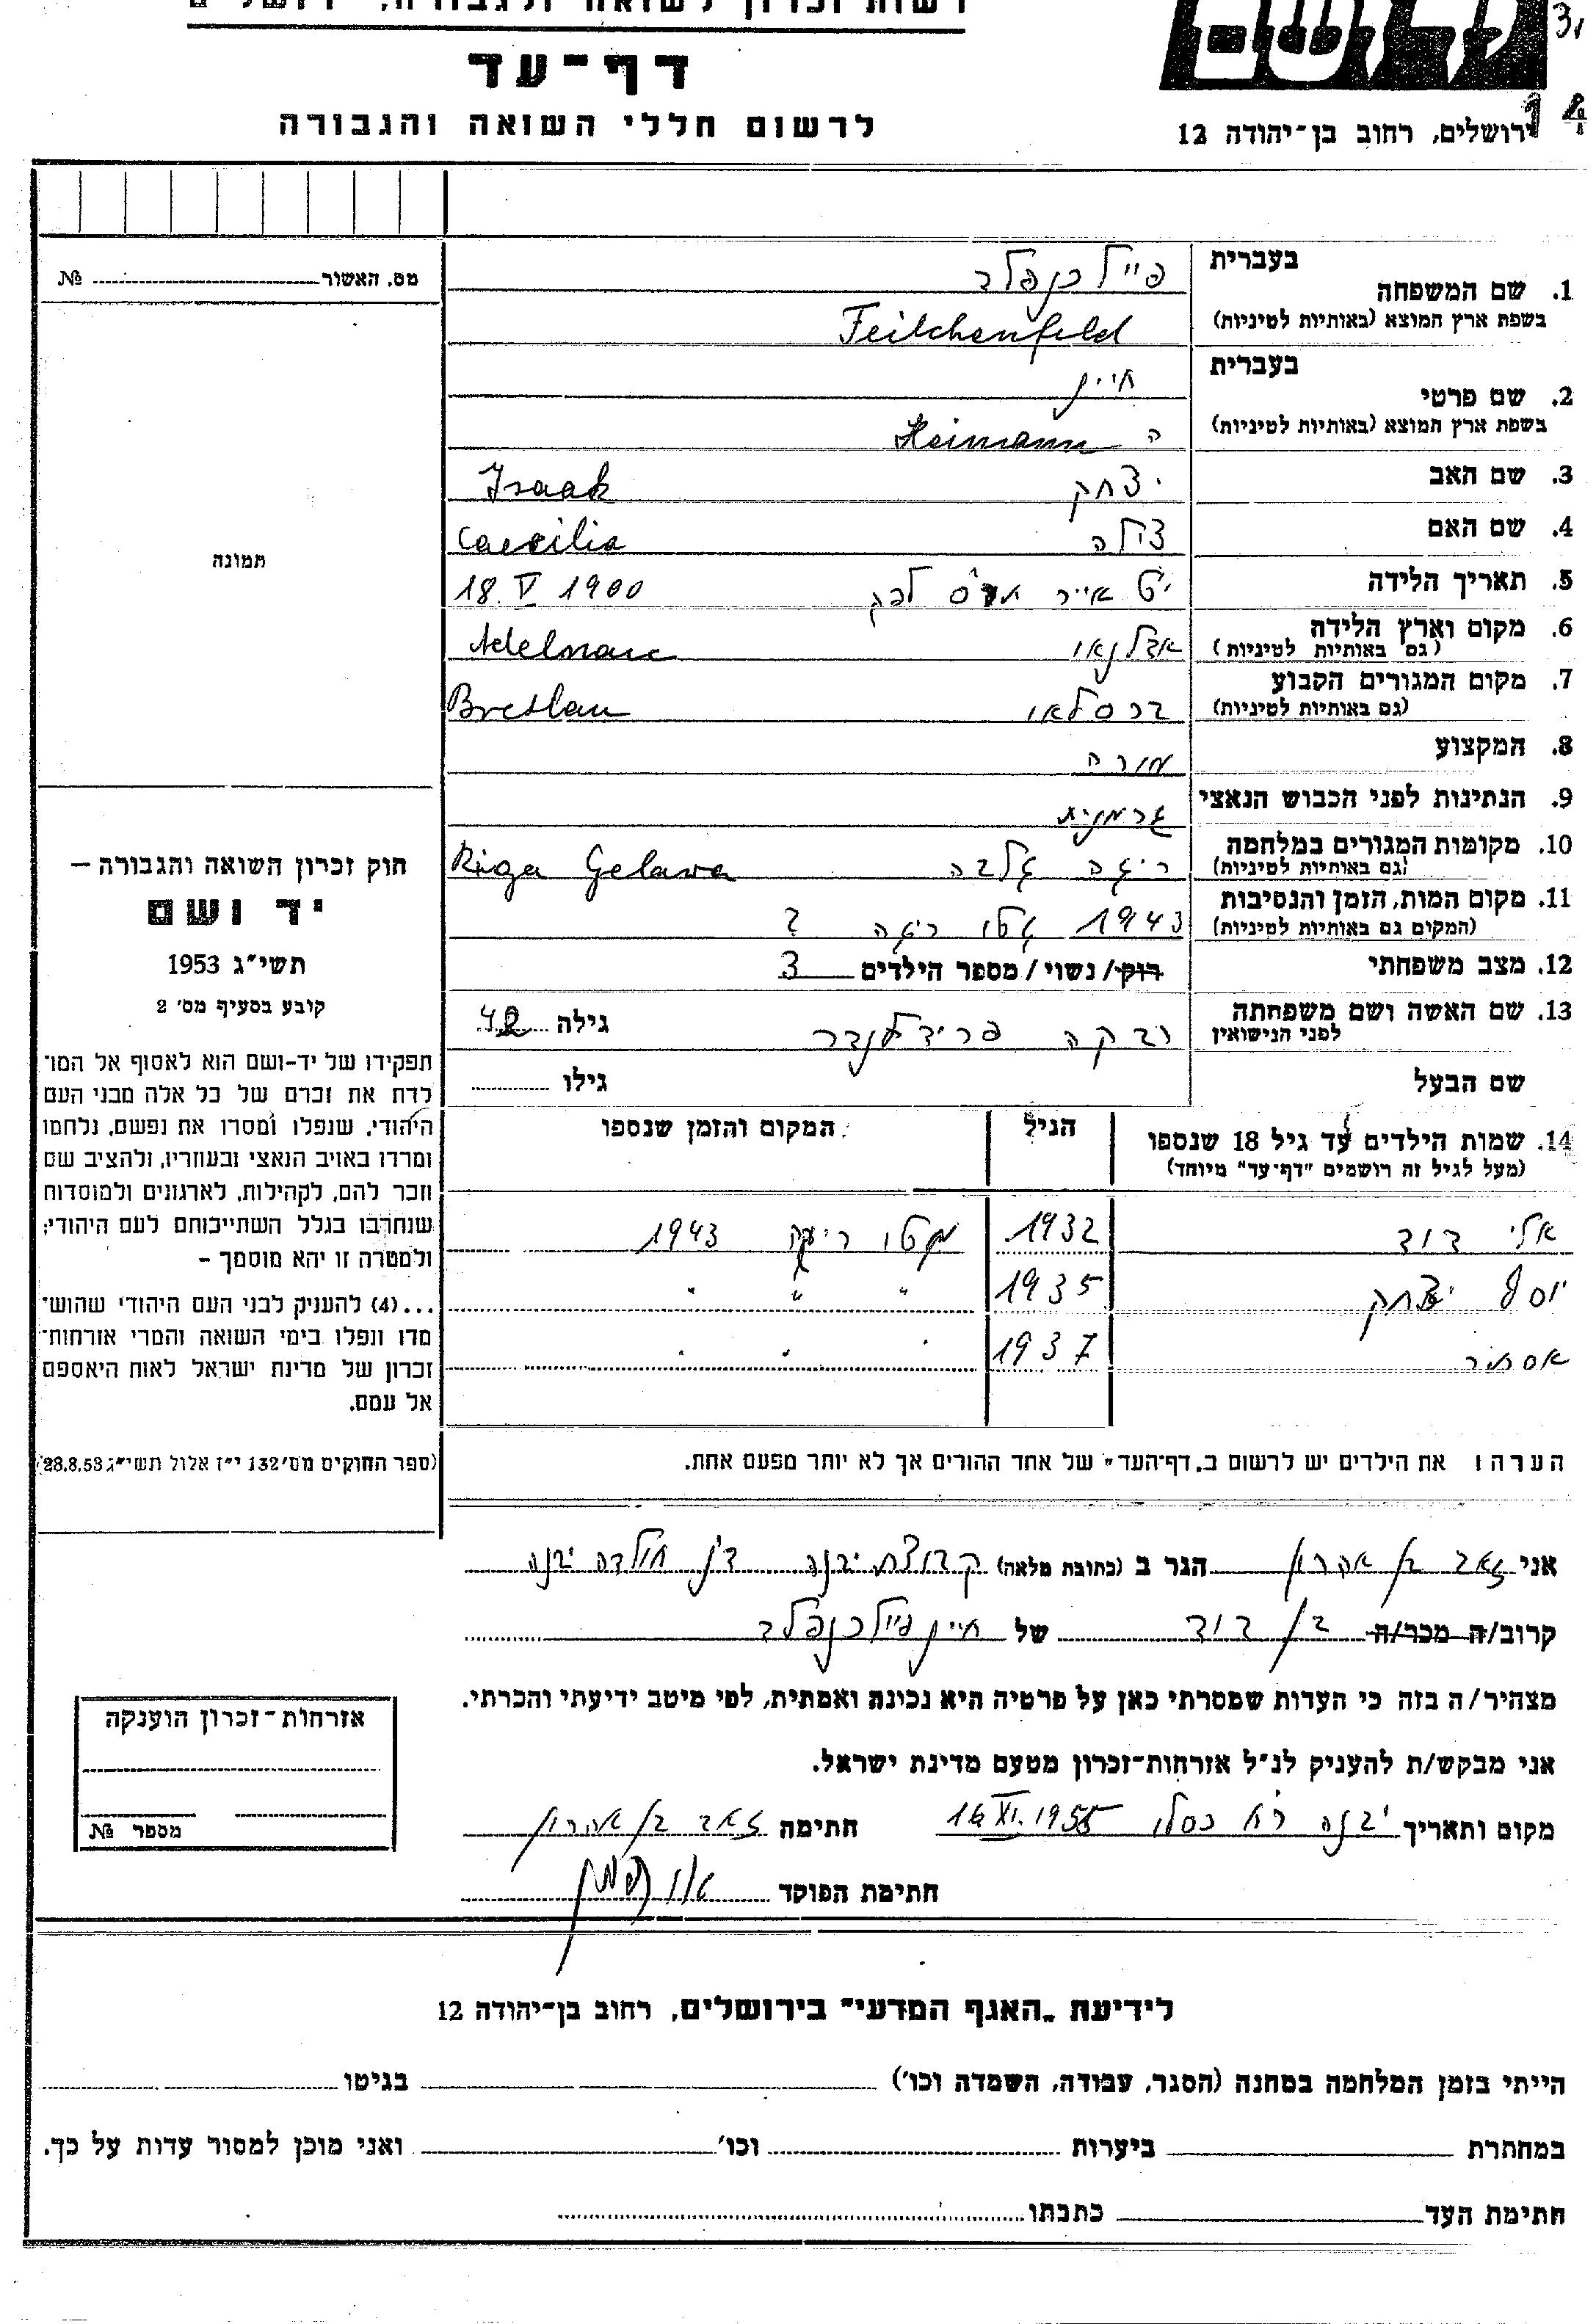 רשות וזכרון לשואה ולגבורה, ירושלים
דף-עד
לרשום חללי השואה והגבורה
ירושלים, רחוב בן-יהודה 12
מס. האשור № 
1. שם המשפחה בעברית פיילכנפלד
בשפת ארץ המוצא (באותיות לטיניות) Feilchenfeld
2. שם פרטי בעברית חיים
בשפת ארץ המוצא (באותיות לטיניות) Heimann
3. שם האב יצחק Isaak
4. שם האם צילה Caecilia
5. תאריך הלידה י"ט אייר תר"ס לפק 18. V 1900
6. מקום וארץ הלידה אדלנאו Adelnau
(גם באותיות לטיניות)
7. מקום המגורים הקבוע ברסלאו Breslau
(גם באותיות לטיניות)
8. המקצוע מורה
9. הנתינות לפני הכבוש הנאצי גרמנית
10. מקומות המגורים במלחמה ריגה גלבה Riga Gelava
(גם באותיות לטיניות)
11. מקום המות, הזמן והנסיבות 1943 גטו ריגה ?
(המקום גם באותיות לטיניות)
12. מצב משפחתי רווק/ נשוי/ מספר הילדים 3
13. שם האשה ושם משפחתה רבקה פרידלנדר גילה 42
לפני הנישואין
שם הבעל גילו
14. שמות הילדים עד גיל 18 שנספו הגיל המקום והזמן שנספו
(מעל לגיל זה רושמים "דף-עד" מיוחד)
אלי דוד 1932 גטו ריגה 1943
יוסף יצחק 1935 " " "
אסתר 1937 " " "
הערה: את הילדים יש לרשום ב„דף-העד" של אחד ההורים אך לא יותר מפעם אחת.
תמונה
חוק זכרון השואה והגבורה –
יד ושם
תשי"ג 1953
קובע בסעיף מס' 2
תפקידו של יד-ושם הוא לאסוף אל המו־
לדת את זכרם של כל אלה מבני העם
היהודי, שנפלו ומסרו את נפשם, נלחמו
ומרדו באויב הנאצי ובעוזריו, ולהציב שם
וזכר להם, לקהילות, לארגונים ולמוסדות
שנחרבו בגלל השתייכותם לעם היהודי;
ולמטרה זו יהא מוסמך –
...(4) להעניק לבני העם היהודי שהוש־
מדו ונפלו בימי השואה והמרי אזרחות־
זכרון של מדינת ישראל לאות היאספם
אל עמם.
(ספר החוקים מס' 132 י"ז אלול תשי"ג 28.8.53)
אני זאב בן אהרון הגר ב (כתובת מלאה) קבוצת יבנה ד"נ חולדה יבנה
קרוב/ה מכר/ה בן דוד של חיים פיילכנפלד
מצהיר/ה בזה כי העדות שמסרתי כאן על פרטיה היא נכונה ואמתית, לפי מיטב ידיעתי והכרתי.
אני מבקש/ת להעניק לנ"ל אזרחות-זכרון מטעם מדינת ישראל.
מקום ותאריך יבנה ר"ח כסלו 16.XI.1955 חתימה זאב בן אהרון
חתימת הפוקד
אזרחות-זכרון הוענקה
מספר №
לידיעת „האגף המדעי" בירושלים, רחוב בן-יהודה 12
הייתי בזמן המלחמה במחנה (הסגר, עבודה, השמדה וכו') בגיטו
במחתרת ביערות וכו' ואני מוכן למסור עדות על כך.
חתימת העד כתבתו